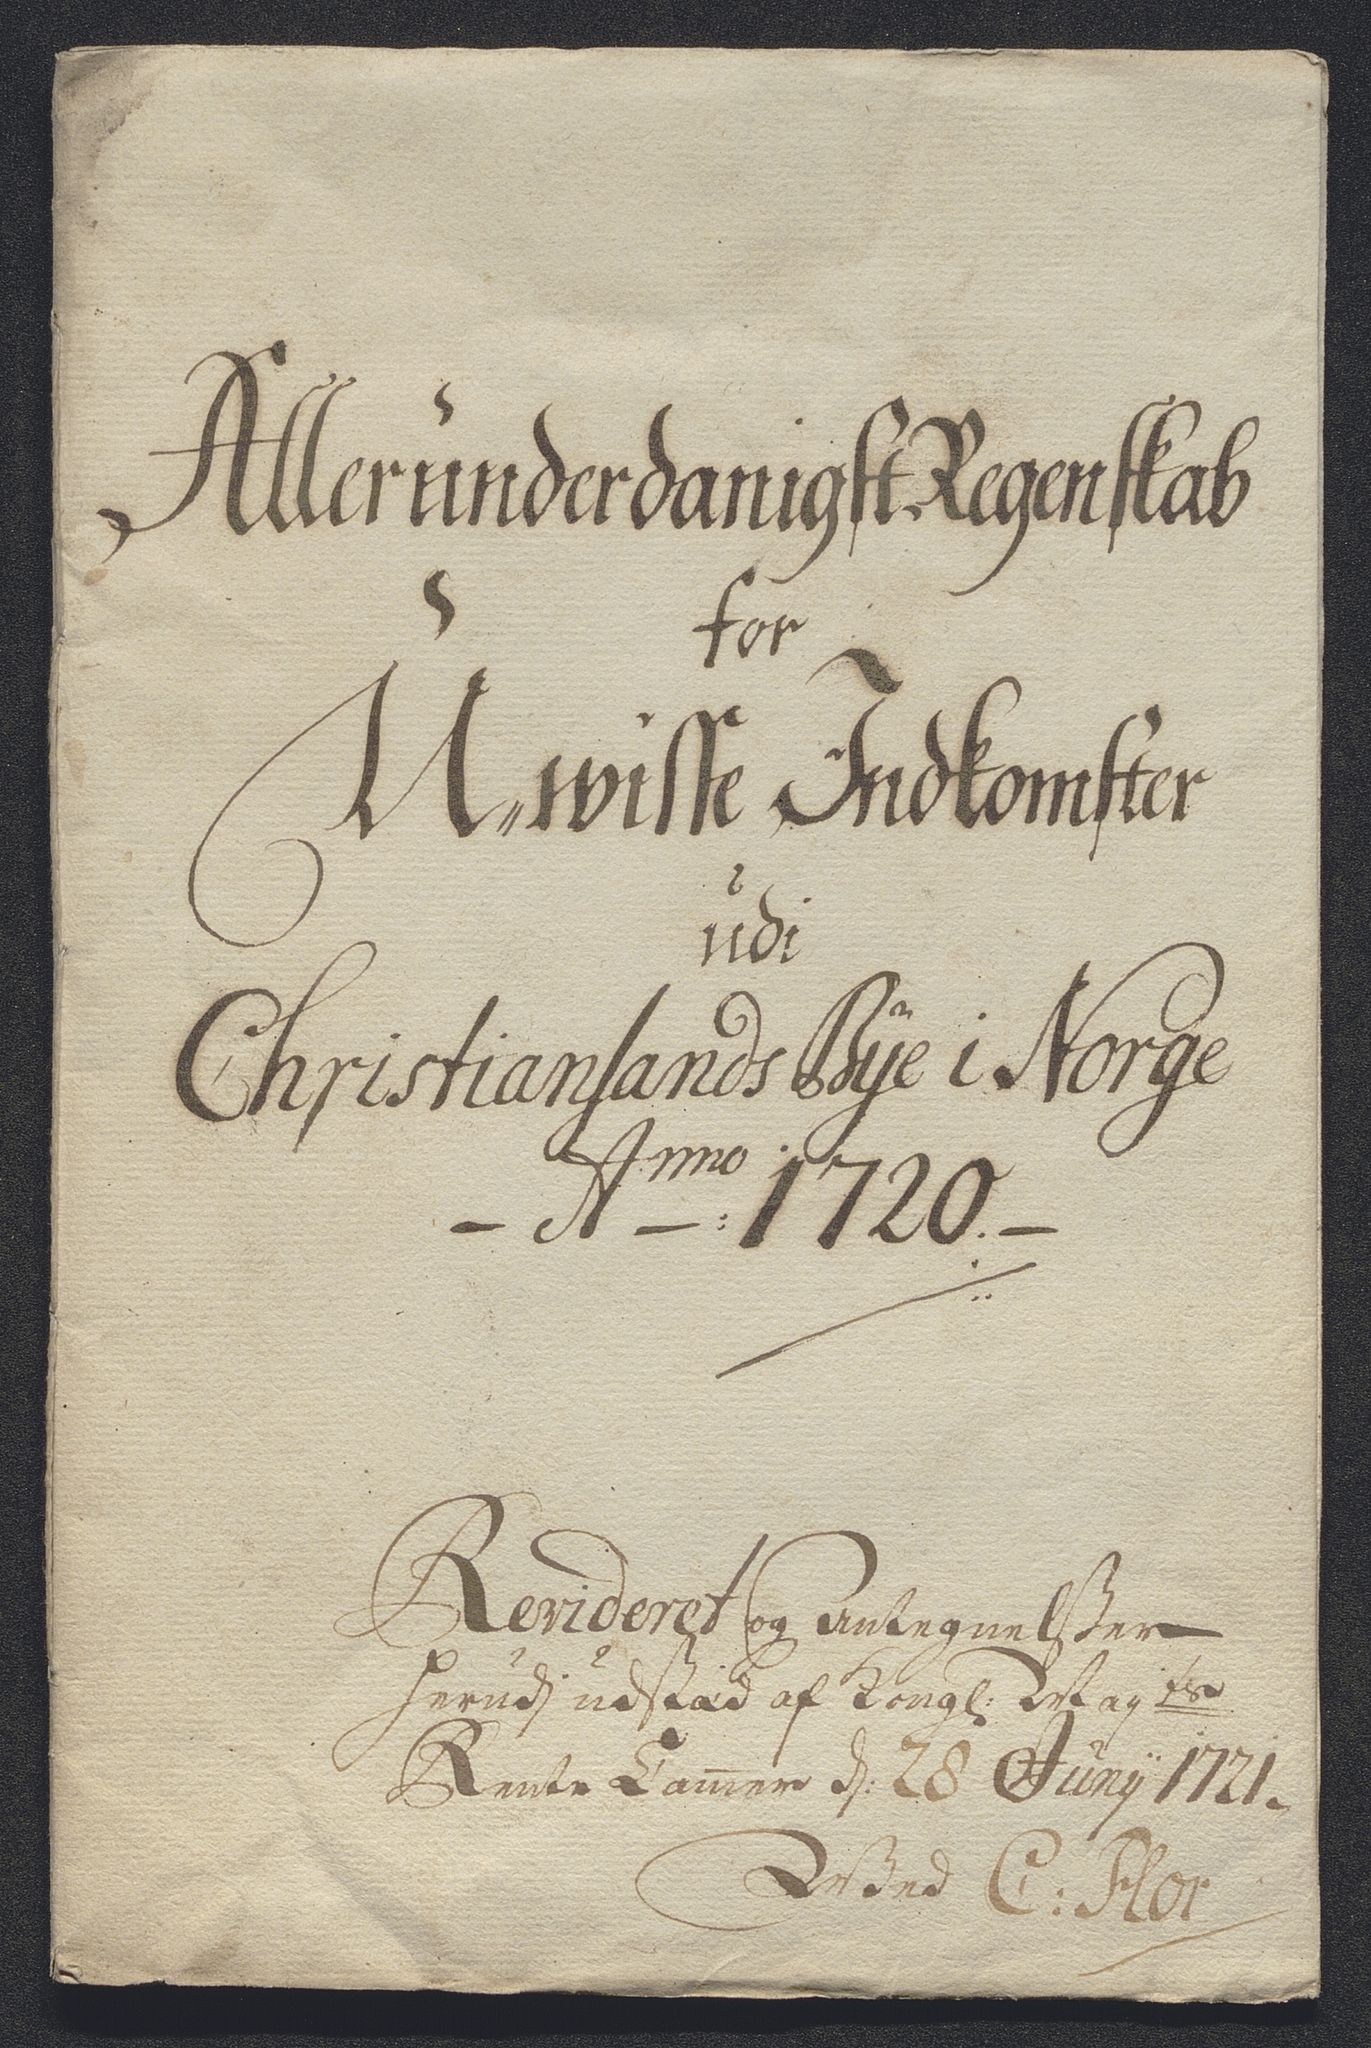 Alleründerdanigst Regenskab
for
U„wisse Indkomster
üdi
Christiansands Bÿe i Norge
- Anno: 1720. -
Revideret og Antegnelsser
herudj udstæd af Kongl: Mayts
Rente Camer d: 28 Junij 1721.
Wed C: Flor